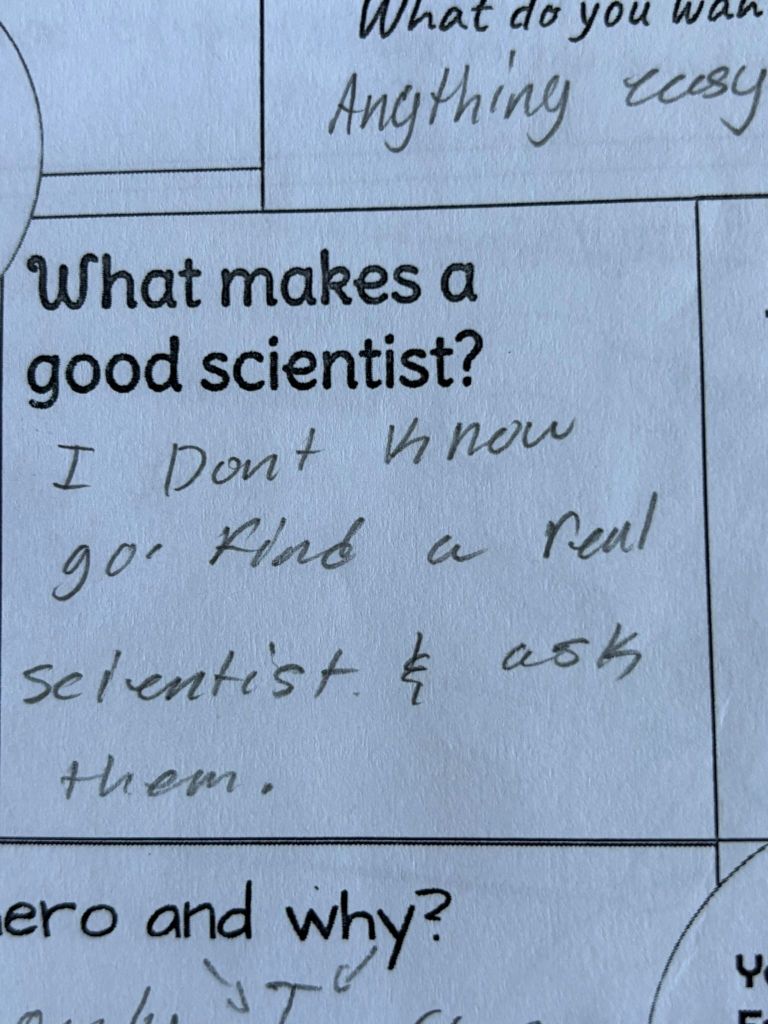 What do you wan
Anything easy
What makes a
good scientist?
I Dont know
go find a real
scientist. & ask
them.
ero and why?
I
Yo